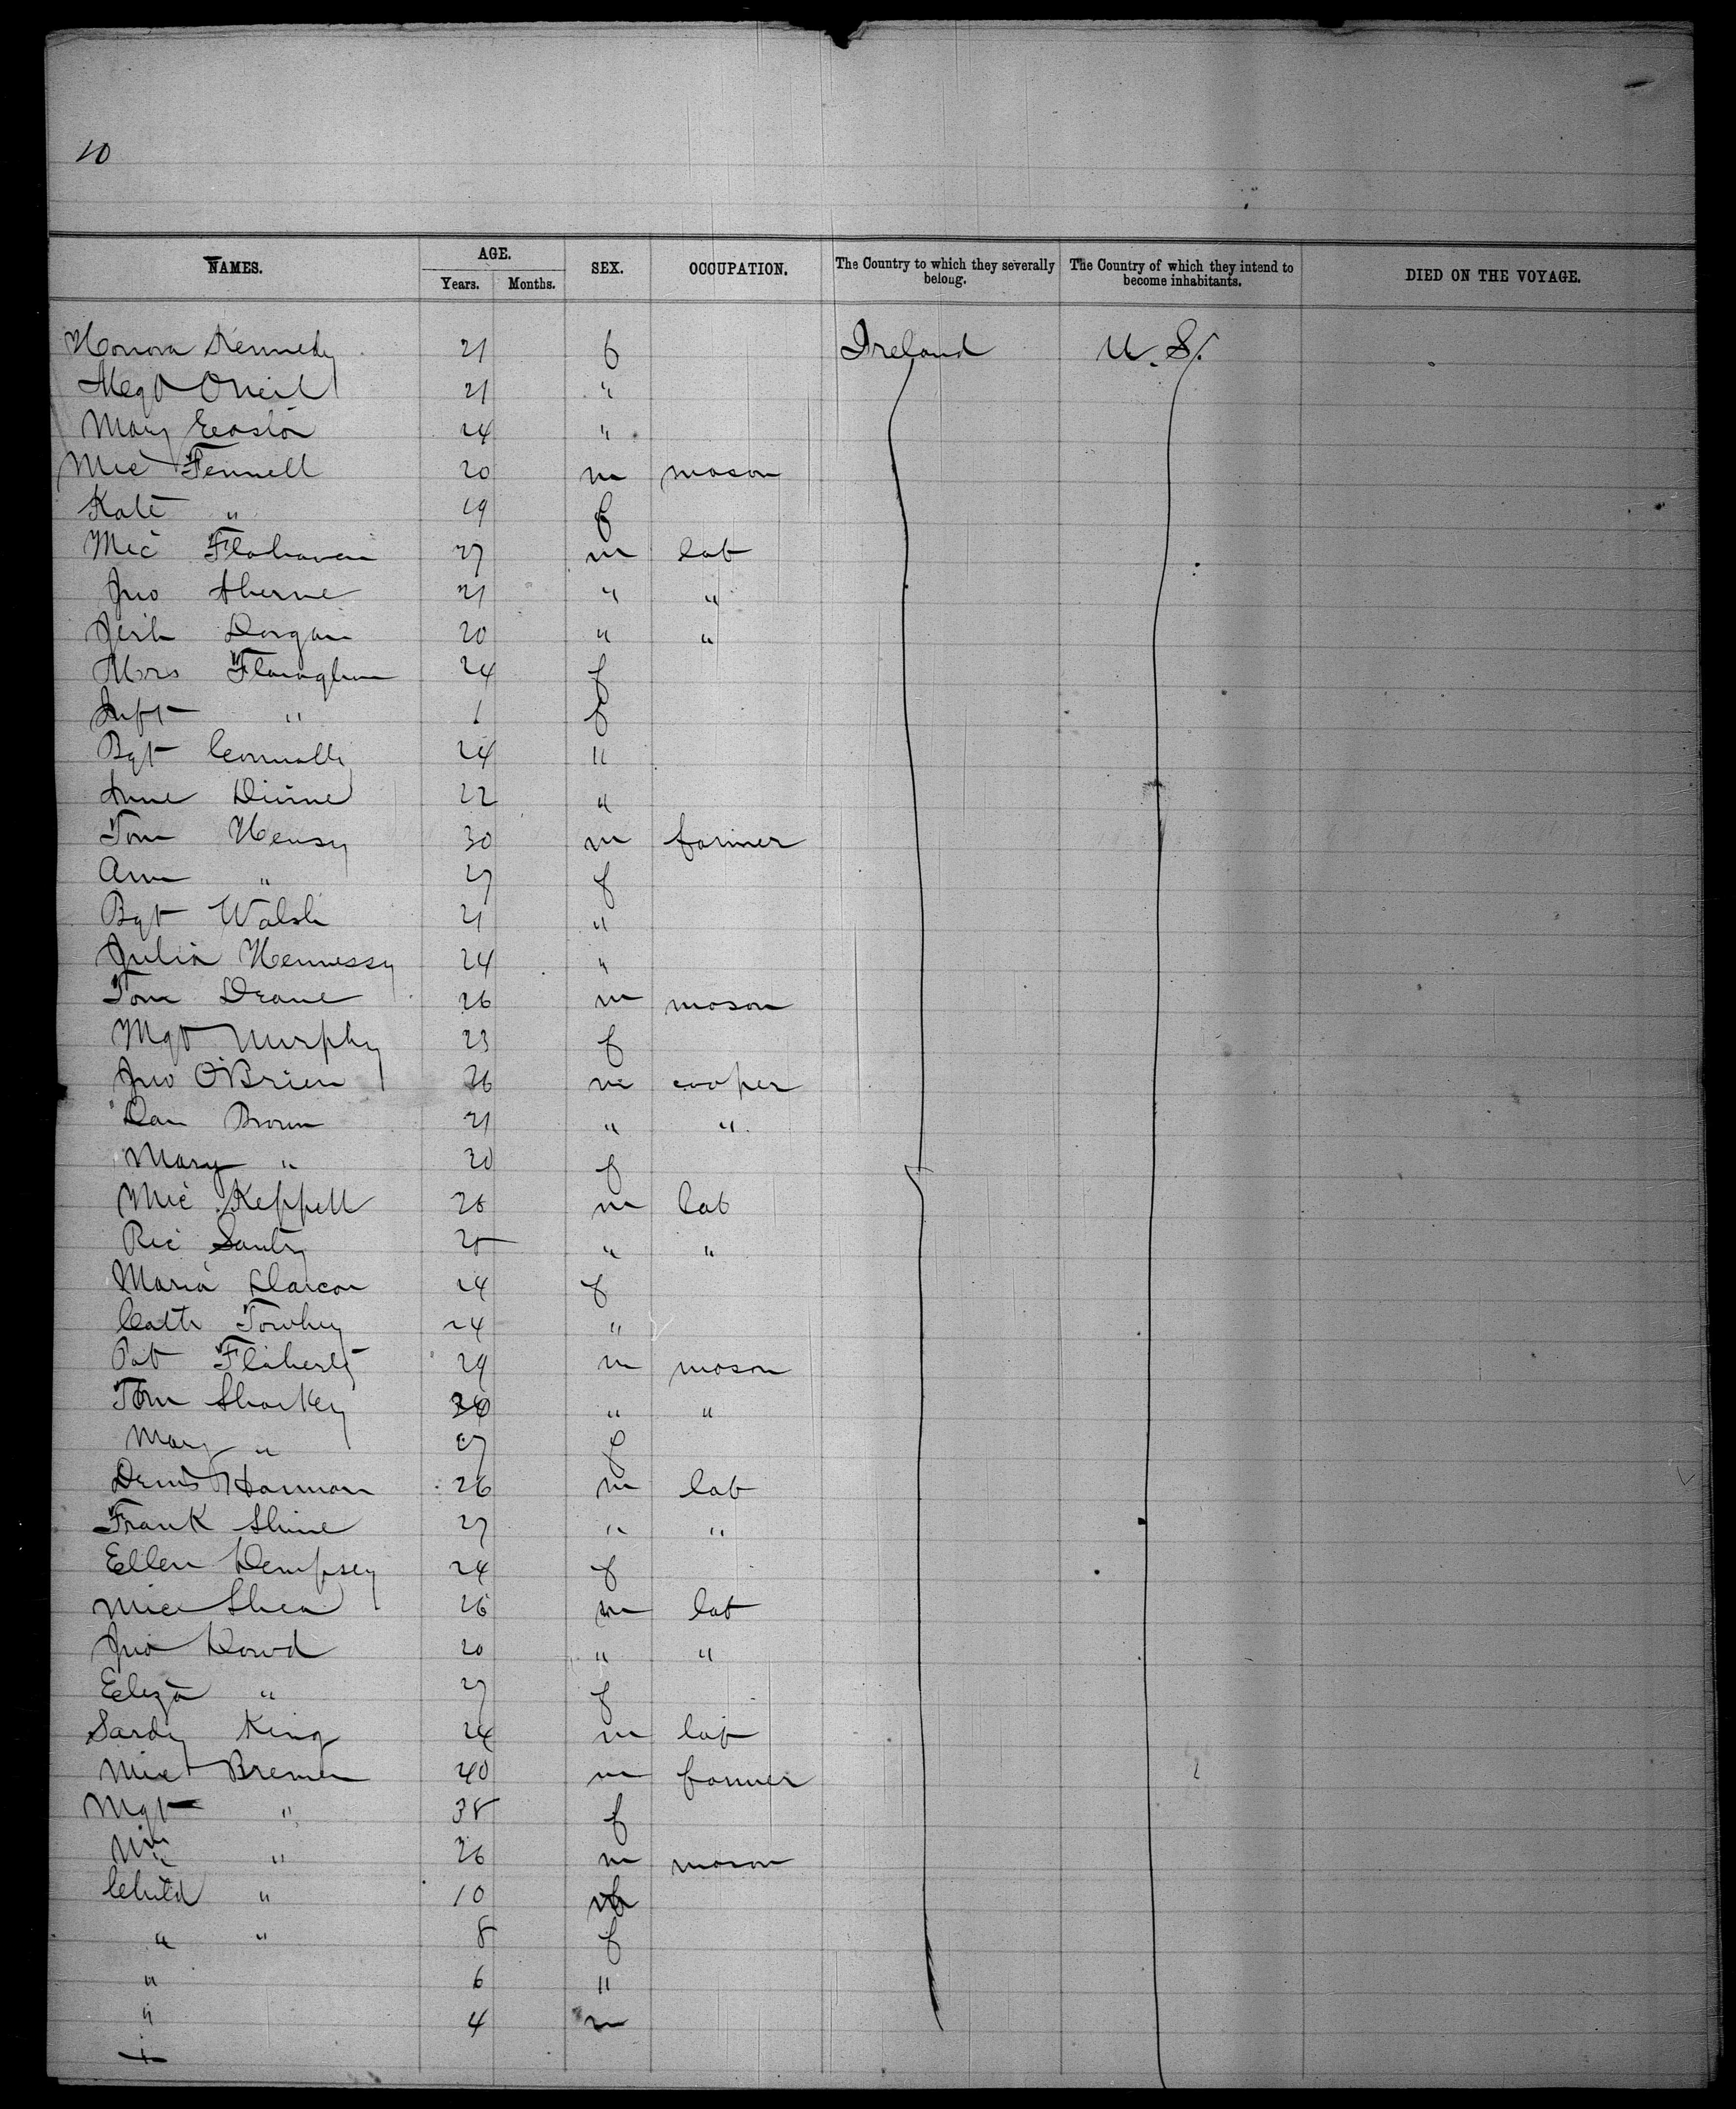 10
NAMES. AGE. SEX. OCCUPATION. The Country to which they severally belong. The Country of which they intend to become inhabitants. DIED ON THE VOYAGE.
Years. Months.
Honora Kennedy 21 f Ireland U.S.
Megt O'Neil 21 "
Mary 24 "
Mic Fennell 20 m mason
Kate " 19 f
Mic Flahaven 27 m lab
Jno Aherne 21 " "
Jerh Dorgan 20 " "
Mrs Flanaghan 24 f
Inft " 1 f
Bgt Connolly 24 "
Anne Divine 22 "
Tom Hensy 30 m farmer
Ann " 27 f
Bgt Walsh 21 "
Julia Hennessy 24 "
Tom Deane 26 m mason
Mgt Murphy 23 f
Jno O'Brien 26 m cooper
Dan Brown 21 " "
Mary " 20 f
Mic Keppell 26 m lab
Ric Santry 25 " "
Maria 24 f
Cath Towhey 24 "
Pat Flaherty 29 m mason
Tom Sharkey 30 " "
Mary " 27 f
Denis Hannan 26 m lab
Frank Shine 27 " "
Ellen Dempsey 24 f
Mic Shea 26 m lab
Jno Dowd 20 " "
Eliza " 27 f
Sardy King 24 m lab
Mic Brennen 40 m farmer
Mgt " 38 f
" 26 m mason
Child " 10
" " 8 f
" 6 "
" 4 m